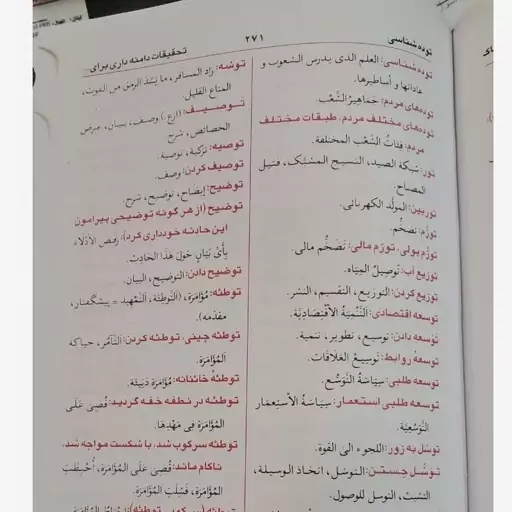 توده شناسی
۲۷۱
تحقیقات دامنه داری برای...
توده شناسی: العلم الذی یدرس الشعوب و
عاداتها و أساطیرها.
توده‌های مردم: جَمَاهِیرُ الشَّعْب.
توده‌های مختلف مردم، طبقات مختلف
مردم: فِئَاتُ الشَّعْب المختلفة.
تور: شبکة الصید، النسیج المشبّک، فتیل
المصباح.
توربین: المولّد الکهربائی.
تورّم: تضخُّم.
تورّم پولی، تورّم مالی: تَضَخُّم مالی.
توزیع آب: تَوصِیلُ المِیَاه.
توزیع کردن: التوزیع، التقسیم، النشر.
توسعه اقتصادی: اَلتَّنْمِیَةُ الْأَقْتِصَادِیَّة.
توسعه دادن: توسیع، تطویر، تنمیة.
توسعهٔ روابط: تَوْسِیعُ العَلاقات.
توسعه طلبی: سِیَاسَةُ التَوَسُّع.
توسعه طلبی استعمار: سِیَاسَةُ الأسْتِعمَار
التَّوَسُّعِیَّة.
توسّل به زور: اللجوء الی القوة.
توسُّل جستن: التوسّل، اتخاذ الوسیلة،
التشبث، التوسل للوصول.
توشه: زاد المسافر، ما یَسُدّ الرمق من القوت،
المتاع القلیل.
توصیف: (ع.) وصف، بیان، عرض
الخصائص، شرح
توصیه: تزکیة، توصیة.
توصیف کردن: وصف.
توضیح: إیضاح، توضیح، شرح.
توضیح (از هر گونه توضیحی پیرامون
این حادثه خودداری کرد): رفض الأدْلَاءَ
بِأَیِّ بَیَانٍ حَولَ هَذَا الحَادِث.
توضیح دادن: التوضیح، البیان.
توطئه: مُؤَامَرَة، (اَلتَّوطِئَة، اَلتَّمْهِید = پیشگفتار،
مقدمه).
توطئه چینی، توطئه کردن: اَلتَآمُر، حیاکة
اَلْمُؤَامَرَة.
توطئهٔ خائنانه: مُؤَامَرَة دَنِیئَة.
توطئه در نطفه خفه گردید: قُضِیَ عَلَی
المُؤَامَرَة فِی مَهْدِهَا.
توطئه سرکوب شد، با شکست مواجه شد،
ناکام ماند: قُضِیَ عَلَی المُؤَامَرَة، أُحْبِطَتْ
المُؤَامَرَة، فَشِلَتِ المُؤَامَرَة.